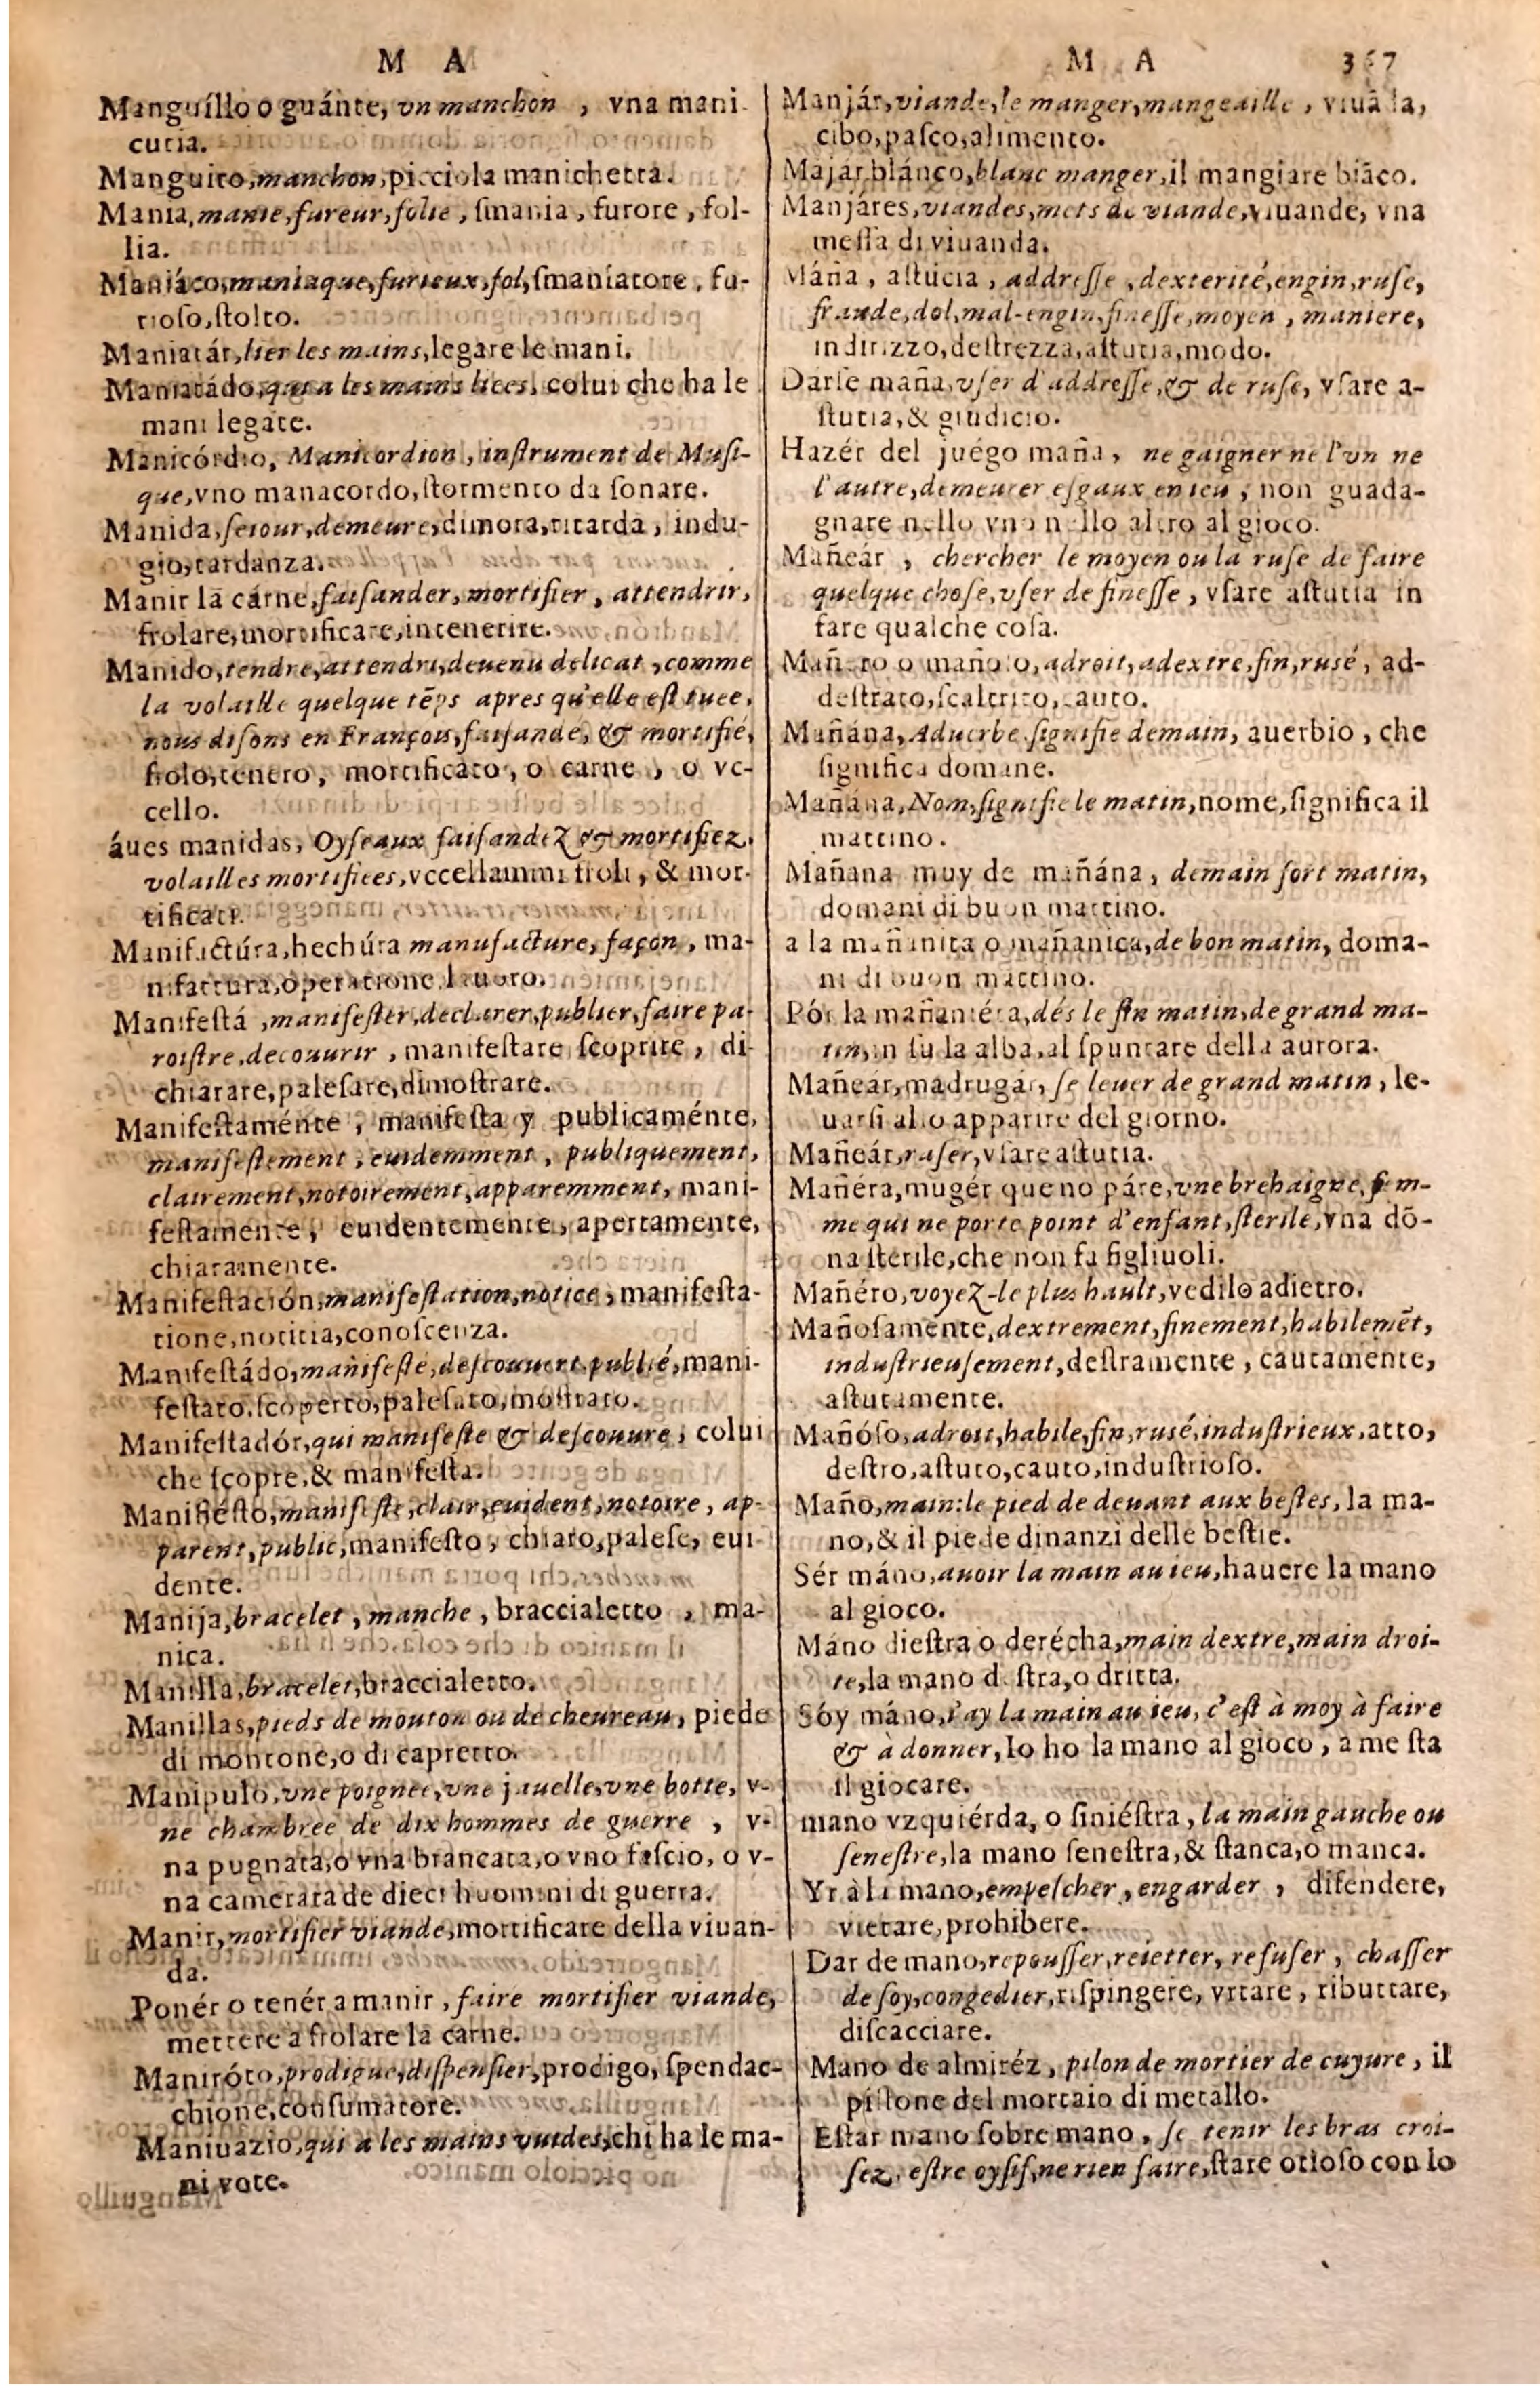 M A
Manguíllo o guánte, vn manchon , vna mani-
cutia.
Manguito, manchon, picciola manichetta.
Mania, manie, fureur, folie , ſmania, furore, fol-
lia.
Maniáco, maniaque, furieux, fol, ſmaniatore , fu-
rioſo, ſtolto.
Maniatár, lier les mains, legare le mani.
Maniatádo, qui a les mains liees, colui che ha le
mani legate.
Manicórdio, Manicordion, inſtrument de Muſi-
que, vno manacordo, ſtormento da ſonare.
Manida, ſeiour, demeure, dimora, ritarda, indu-
gio, tardanza.
Manir la cárne, faiſander, mortifier, attendrir,
frolare, mortificare, intenerire.
Manido, tendre, attendri, deuenu delicat, comme
la volaille quelque tẽps apres qu'elle eſt tuee,
nous diſons en François, faiſandé, & mortifié,
frolo, tenero, mortificato, o carne, o vc-
cello.
áues manidas, Oyſeaux faiſandez & mortifiez,
volailles mortifiees, vccellammi froli, & mor-
tificati.
Manifactúra, hechúra manufacture, façon, ma-
nifattura, operatione, lauoro.
Manifeſtá , manifeſter, declarer, publier, faire pa-
roiſtre, decouurir , manifeſtare ſcoprire, di-
chiarare, paleſare, dimoſtrare.
Manifeſtaménte , manifeſta y publicaménte,
manifeſtement, euidemment, publiquement,
clairement, notoirement, apparemment, mani-
feſtamente, euidentemente, apertamente,
chiaramente.
Manifeſtación, manifeſtation, notice, manifeſta-
tione, notitia, conoſcenza.
Manifeſtádo, manifeſté, deſcouuert, publié, mani-
feſtato, ſcoperto, paleſato, moſtrato.
Manifeſtadór, qui manifeſte & deſcouure, colui
che ſcopre, & manifeſta.
Manifiéſto, manifeſte, clair, euident, notoire, ap-
parent, public, manifeſto, chiaro, paleſe, eui-
dente.
Manija, bracelet , manche , braccialetto , ma-
nica.
Manilla, bracelet, braccialetto.
Manillas, pieds de mouton ou de cheureau, piede
di montone, o di capretto.
Manipulo, vne poignee, vne jauelle, vne botte, v-
ne chambree de dix hommes de guerre , v-
na pugnata, o vna brancata, o vno faſcio, o v-
na camerata de dieci huomini di guerra.
Manir, mortifier viande, mortificare della viuan-
da.
Ponér o tenér a manir, faire mortifier viande,
mettere a frolare la carne.
Maniróto, prodigue, diſpenſier, prodigo, ſpendac-
chione, conſumatore.
Maniuazio, qui a les mains vuides, chi ha le ma-
ni vote.
M A 367
Manjár, viande, le manger, mangeaille , viuãda,
cibo, paſco, alimento.
Majar blánco, blanc manger, il mangiare biãco.
Manjáres, viandes, mets de viande, viuande, vna
meſſa di viuanda.
Máña , aſtúcia , addreſſe , dexterité, engin, ruſe,
fraude, dol, mal-engin, fineſſe, moyen , maniere,
indirizzo, deſtrezza, aſtutia, modo.
Darſe maña, vſer d'addreſſe, & de ruſe, vſare a-
ſtutia, & giudicio.
Hazér del juégo maña, ne gaigner ne l'vn ne
l'autre, demeurer eſgaux en ieu , non guada-
gnare nello vno nello altro al gioco.
Mañeár , chercher le moyen ou la ruſe de faire
quelque choſe, vſer de fineſſe , vſare aſtutia in
fare qualche coſa.
Mañero o mañoſo, adroit, adextre, fin, ruſé, ad-
deſtrato, ſcaltrito, cauto.
Mañána, Aduerbe ſignifie demain, auerbio, che
ſignifica domane.
Mañána, Nom, ſignifie le matin, nome, ſignifica il
mattino.
Mañana muy de mañána, demain fort matin,
domani di buon mattino.
a la mañanita o mañanica, de bon matin, doma-
ni di buon mattino.
Pór la mañaniéra, dés le fin matin, de grand ma-
tin, in ſu la alba, al ſpuntare della aurora.
Mañeár, madrugár, ſe leuer de grand matin, le-
uarſi allo apparire del giorno.
Mañeár, ruſer, vſare aſtutia.
Mañéra, mugér que no páre, vne brehaigne, fem-
me qui ne porte point d'enfant, ſterile, vna dõ-
na ſterile, che non fa figliuoli.
Mañéro, voyez-le plus hault, vedilo adietro.
Mañoſamente, dextrement, finement, habilemẽt,
induſtrieuſement, deſtramente, cautamente,
aſtutamente.
Mañóſo, adroit, habile, fin, ruſé, induſtrieux, atto,
deſtro, aſtuto, cauto, induſtrioſo.
Maño, main: le pied de deuant aux beſtes, la ma-
no, & il piede dinanzi delle beſtie.
Sér máno, auoir la main au ieu, hauere la mano
al gioco.
Máno dieſtra o derécha, main dextre, main droi-
te, la mano deſtra, o dritta.
Sóy máno, i'ay la main au ieu, c'eſt à moy à faire
& à donner, Io ho la mano al gioco, a me ſta
il giocare.
mano yzquiérda, o ſiniéſtra, la main gauche ou
ſeneſtre, la mano ſeneſtra, & ſtanca, o manca.
Yr à la mano, empeſcher, engarder , difendere,
vietare, prohibere.
Dar de mano, repouſſer, reietter, refuſer, chaſſer
de ſoy, congedier, riſpingere, vrtare, ributtare,
diſcacciare.
Mano de almiréz, pilon de mortier de cuyure, il
piſtone del mortaio di metallo.
Eſtar mano ſobre mano, ſe tenir les bras croi-
ſez, eſtre oyſif, ne rien faire, ſtare otioſo con lo